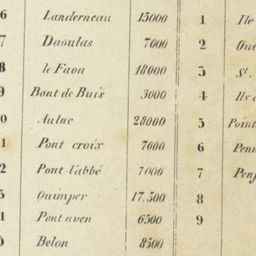 6 Landerneau 15000 1 Ile
7 Daoulas 7000 2
8 le Faou 18000 3 St.
9 Pont de Buix 3000 4
0 Aulne 28000 5 Point
1 Pont croix 7000 6
2 Pont l'abbé 7000 7
3 Quimper 17.500 8
4 Pont aven 6500 9
Belon 8500